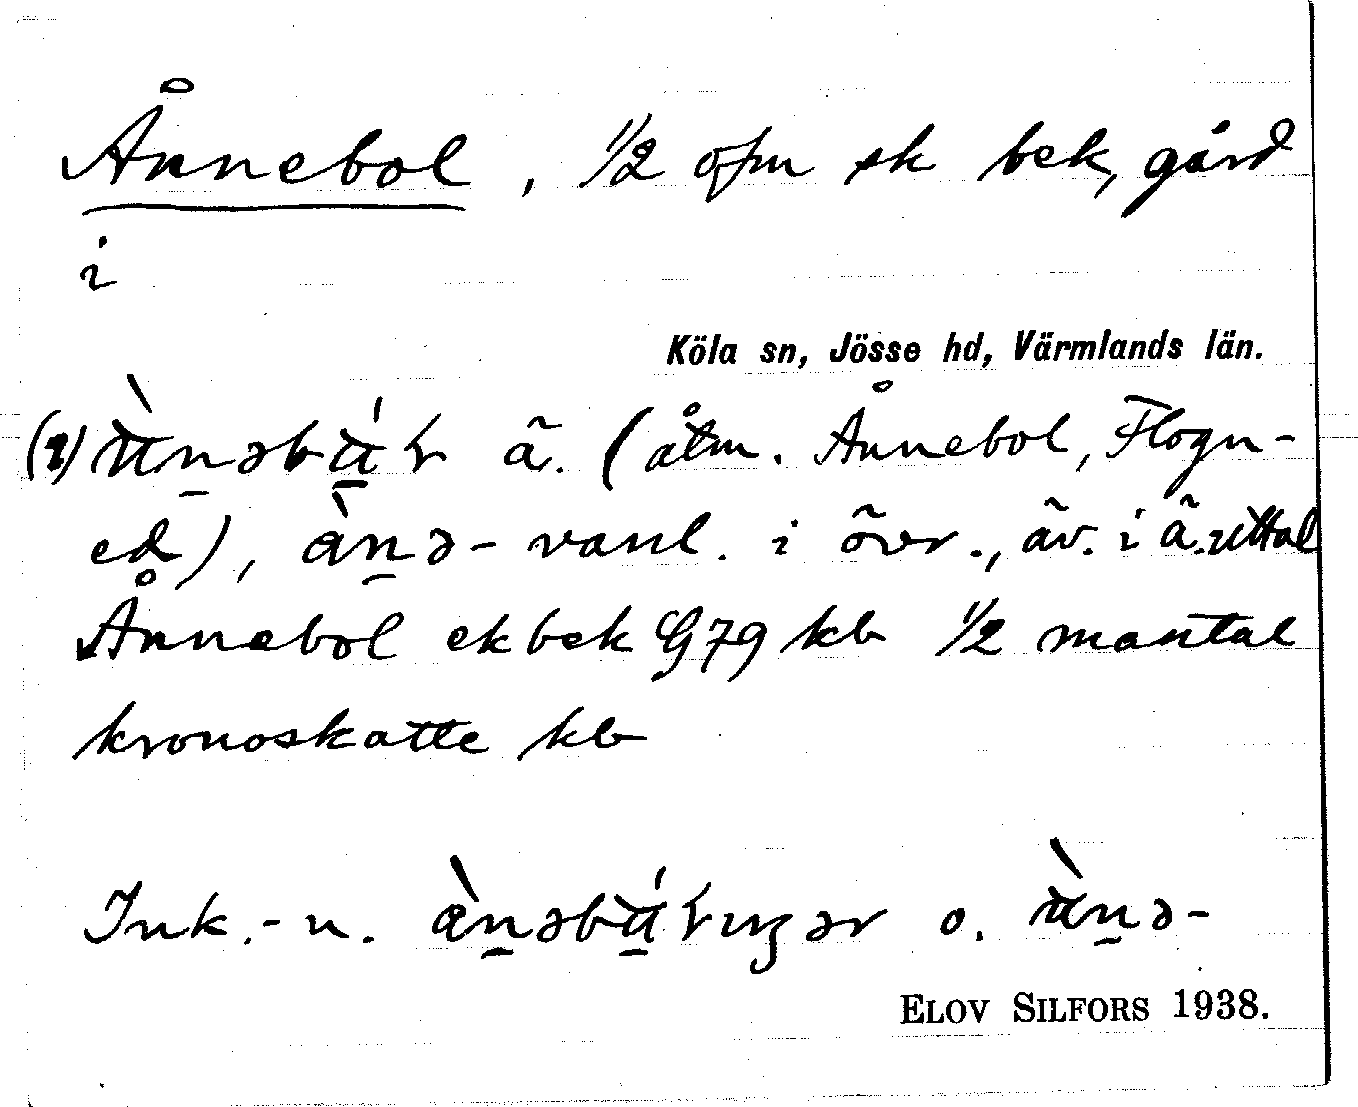 Ånnebol, 1/2 ofm sk bek, gård
i
Köla sn, Jösse hd, Värmlands län.
ä. (åtm. Ånnebol, Flogn-
ed), àn̲ə- vanl. i övr., äv. i ä. uttal
Ånnebol ek bek G79 kb 1/2 mantal
kronoskatte kb
Ink.-n. o.
ELOV SILFORS 1938.